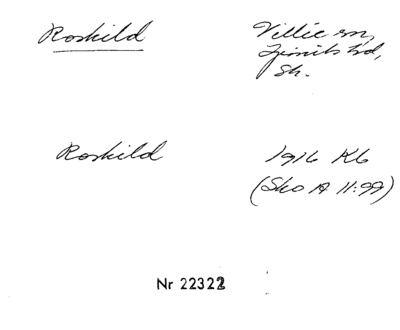 Roskild
Villie sn,
Ljunits hd,
Sk.
Roskild
1916 Kb
(Sko A 11:99)
Nr 22322